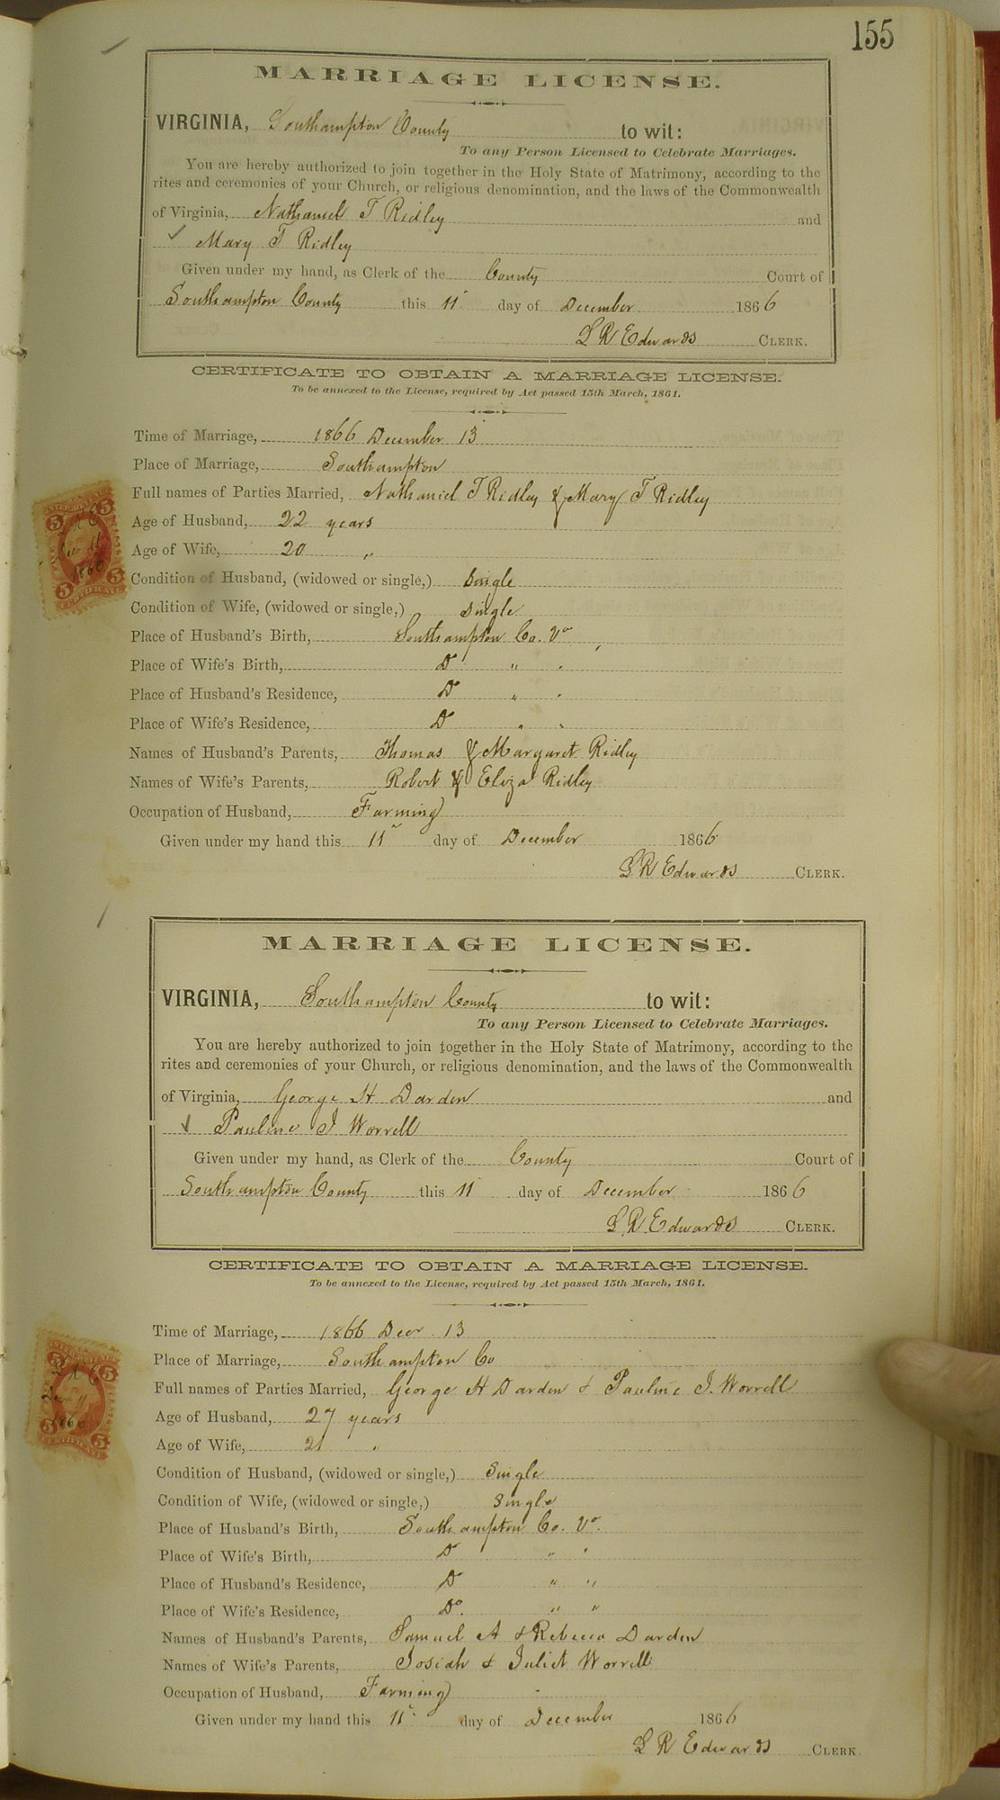 155
MARRIAGE LICENSE.
VIRGINIA, Southampton County to wit:
To any Person Licensed to Celebrate Marriages.
You are hereby authorized to join together in the Holy State of Matrimony, according to the
rites and ceremonies of your Church, or religious denomination, and the laws of the Commonwealth
of Virginia, Nathaniel T Ridley and
Mary T Ridley
Given under my hand, as Clerk of the County Court of
Southampton County this 11 day of December 1866
L R Edwards CLERK.
CERTIFICATE TO OBTAIN A MARRIAGE LICENSE.
To be annexed to the License, required by Act passed 15th March, 1861.
Time of Marriage, 1866 December 13
Place of Marriage, Southampton
Full names of Parties Married, Nathaniel T Ridley & Mary T Ridley
Age of Husband, 22 years
Age of Wife, 20 "
Condition of Husband, (widowed or single,) Single
Condition of Wife, (widowed or single,) Single
Place of Husband's Birth, Southampton Co. Va
Place of Wife's Birth, Do " "
Place of Husband's Residence, Do " "
Place of Wife's Residence, Do " "
Names of Husband's Parents, Thomas & Margaret Ridley
Names of Wife's Parents, Robert & Eliza Ridley
Occupation of Husband, Farming
Given under my hand this 11 day of December 1866
L R Edwards CLERK.
MARRIAGE LICENSE.
VIRGINIA, Southampton County to wit:
To any Person Licensed to Celebrate Marriages.
You are hereby authorized to join together in the Holy State of Matrimony, according to the
rites and ceremonies of your Church, or religious denomination, and the laws of the Commonwealth
of Virginia, George H Darden and
Pauline J Worrell
Given under my hand, as Clerk of the County Court of
Southampton County this 11 day of December 1866
L R Edwards CLERK.
CERTIFICATE TO OBTAIN A MARRIAGE LICENSE.
To be annexed to the License, required by Act passed 15th March, 1861.
Time of Marriage, 1866 Decr 13
Place of Marriage, Southampton Co
Full names of Parties Married, George H Darden & Pauline J. Worrell
Age of Husband, 27 years
Age of Wife, 21 "
Condition of Husband, (widowed or single,) Single
Condition of Wife, (widowed or single,) Single
Place of Husband's Birth, Southampton Co. Va.
Place of Wife's Birth, Do " "
Place of Husband's Residence, Do " "
Place of Wife's Residence, Do. " "
Names of Husband's Parents, Samuel A & Rebecca Darden
Names of Wife's Parents, Josiah & Juliet Worrell
Occupation of Husband, Farming
Given under my hand this 11 day of December 1866
L R Edwards CLERK